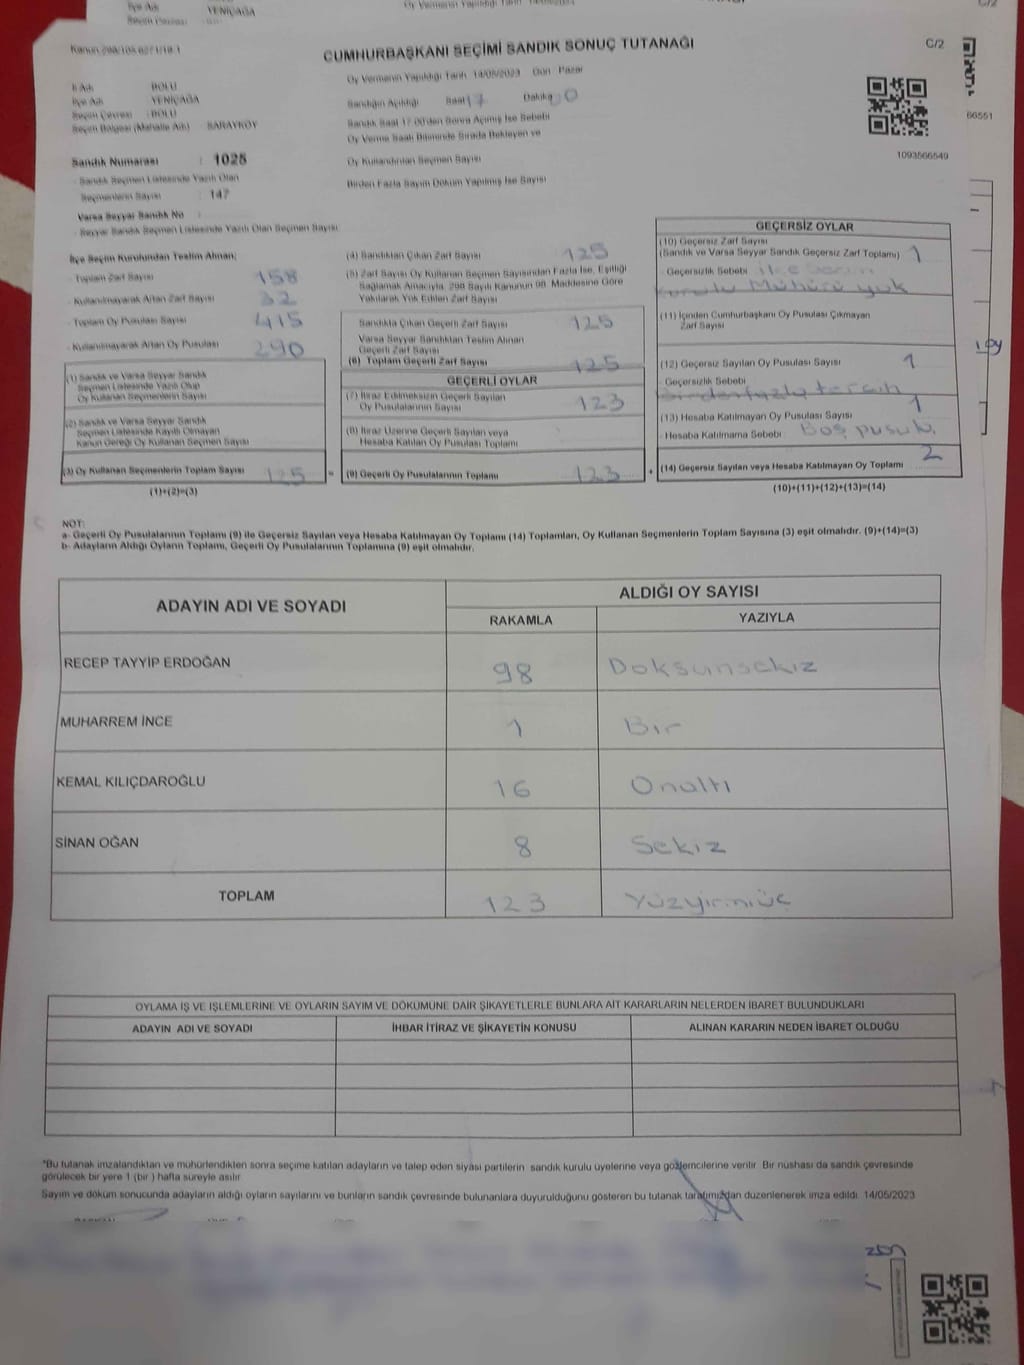 İlçe Adı YENİÇAĞA
CUMHURBAŞKANI SEÇİMİ SANDIK SONUÇ TUTANAĞI
C/2
İl Adı : BOLU
İlçe Adı : YENİÇAĞA
Seçim Çevresi : BOLU
Seçim Bölgesi (Mahalle Adı) : SARAYKÖY
Sandık Numarası : 1025
Sandık Seçmen Listesinde Yazılı Olan
Seçmenlerin Sayısı : 147
Varsa Seyyar Sandık No :
Seyyar Sandık Seçmen Listesinde Yazılı Olan Seçmen Sayısı
Oy Vermenin Yapıldığı Tarih 14/05/2023 Gün Pazar
Sandığın Açıldığı Saat 17 Dakika 00
Sandık Saat 17.00'den Sonra Açılmış İse Sebebi
Oy Verme Saati Bitiminde Sırada Bekleyen ve
Oy Kullandırılan Seçmen Sayısı
Birden Fazla Sayım Döküm Yapılmış İse Sayısı
1093566549
66551
İlçe Seçim Kurulundan Teslim Alınan;
Toplam Zarf Sayısı 158
Kullanılmayarak Artan Zarf Sayısı 32
Toplam Oy Pusulası Sayısı 415
Kullanılmayarak Artan Oy Pusulası 290
(1) Sandık ve Varsa Seyyar Sandık
Seçmen Listesinde Yazılı Olup
Oy Kullanan Seçmenlerin Sayısı
(2) Sandık ve Varsa Seyyar Sandık
Seçmen Listesinde Kayıtlı Olmayan
Kanun Gereği Oy Kullanan Seçmen Sayısı
(3) Oy Kullanan Seçmenlerin Toplam Sayısı 125 =
(1)+(2)=(3)
(4) Sandıktan Çıkan Zarf Sayısı 125
(5) Zarf Sayısı Oy Kullanan Seçmen Sayısından Fazla İse, Eşitliği
Sağlamak Amacıyla, 298 Sayılı Kanunun 98. Maddesine Göre
Yakılarak Yok Edilen Zarf Sayısı
Sandıkta Çıkan Geçerli Zarf Sayısı 125
Varsa Seyyar Sandıktan Teslim Alınan
Geçerli Zarf Sayısı
(6) Toplam Geçerli Zarf Sayısı 125
GEÇERLİ OYLAR
(7) İtiraz Edilmeksizin Geçerli Sayılan
Oy Pusulalarının Sayısı 123
(8) İtiraz Üzerine Geçerli Sayılan veya
Hesaba Katılan Oy Pusulası Toplamı
(9) Geçerli Oy Pusulalarının Toplamı 123 +
GEÇERSİZ OYLAR
(10) Geçersiz Zarf Sayısı
(Sandık ve Varsa Seyyar Sandık Geçersiz Zarf Toplamı) 1
- Geçersizlik Sebebi ilçe seçim
kurulu Mühürü yok
(11) İçinden Cumhurbaşkanı Oy Pusulası Çıkmayan
Zarf Sayısı
(12) Geçersiz Sayılan Oy Pusulası Sayısı 1
- Geçersizlik Sebebi
Birden fazla tercih
(13) Hesaba Katılmayan Oy Pusulası Sayısı 1
- Hesaba Katılmama Sebebi Boş pusula
(14) Geçersiz Sayılan veya Hesaba Katılmayan Oy Toplamı 2
(10)+(11)+(12)+(13)=(14)
NOT:
a- Geçerli Oy Pusulalarının Toplamı (9) ile Geçersiz Sayılan veya Hesaba Katılmayan Oy Toplamı (14) Toplamları, Oy Kullanan Seçmenlerin Toplam Sayısına (3) eşit olmalıdır. (9)+(14)=(3)
b- Adayların Aldığı Oyların Toplamı, Geçerli Oy Pusulalarının Toplamına (9) eşit olmalıdır.
ADAYIN ADI VE SOYADI
ALDIĞI OY SAYISI
RAKAMLA YAZIYLA
RECEP TAYYİP ERDOĞAN 98 Doksunsekiz
MUHARREM İNCE 1 Bir
KEMAL KILIÇDAROĞLU 16 Onaltı
SİNAN OĞAN 8 Sekiz
TOPLAM 123 Yüzyirmiüç
OYLAMA İŞ VE İŞLEMLERİNE VE OYLARIN SAYIM VE DÖKÜMÜNE DAİR ŞİKAYETLERLE BUNLARA AİT KARARLARIN NELERDEN İBARET BULUNDUKLARI
ADAYIN ADI VE SOYADI İHBAR İTİRAZ VE ŞİKAYETİN KONUSU ALINAN KARARIN NEDEN İBARET OLDUĞU
*Bu tutanak imzalandıktan ve mühürlendikten sonra seçime katılan adayların ve talep eden siyasi partilerin sandık kurulu üyelerine veya gözlemcilerine verilir. Bir nüshası da sandık çevresinde
görülecek bir yere 1 (bir ) hafta süreyle asılır.
Sayım ve döküm sonucunda adayların aldığı oyların sayılarını ve bunların sandık çevresinde bulunanlara duyurulduğunu gösteren bu tutanak tarafımızdan düzenlenerek imza edildi. 14/05/2023